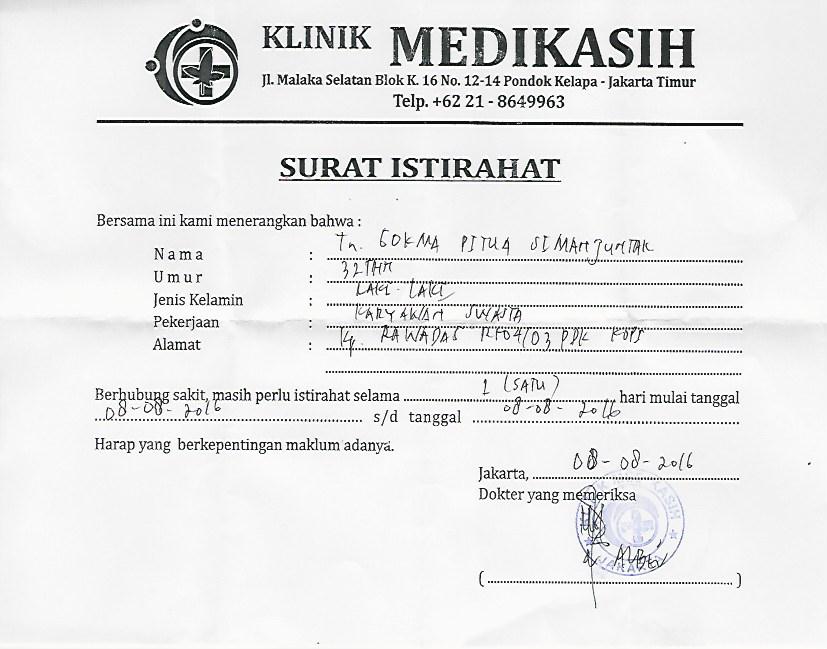 KLINIK MEDIKASIH
Jl. Malaka Selatan Blok K. 16 No. 12-14 Pondok Kelapa - Jakarta Timur
Telp. +62 21 - 8649963
SURAT ISTIRAHAT
Bersama ini kami menerangkan bahwa :
Nama : Tn. GOKMA PITUA SIMANJUNTAK
Umur : 32 THN
Jenis Kelamin : LAKI-LAKI
Pekerjaan : KARYAWAN SWASTA
Alamat : RAWADAS RT04/03 PDK KOPI
Berhubung sakit, masih perlu istirahat selama 1 (SATU) hari mulai tanggal
08-08-2016 s/d tanggal 08-08-2016
Harap yang berkepentingan maklum adanya.
Jakarta, 08-08-2016
Dokter yang memeriksa
KASIH
JAKARTA
(..........)